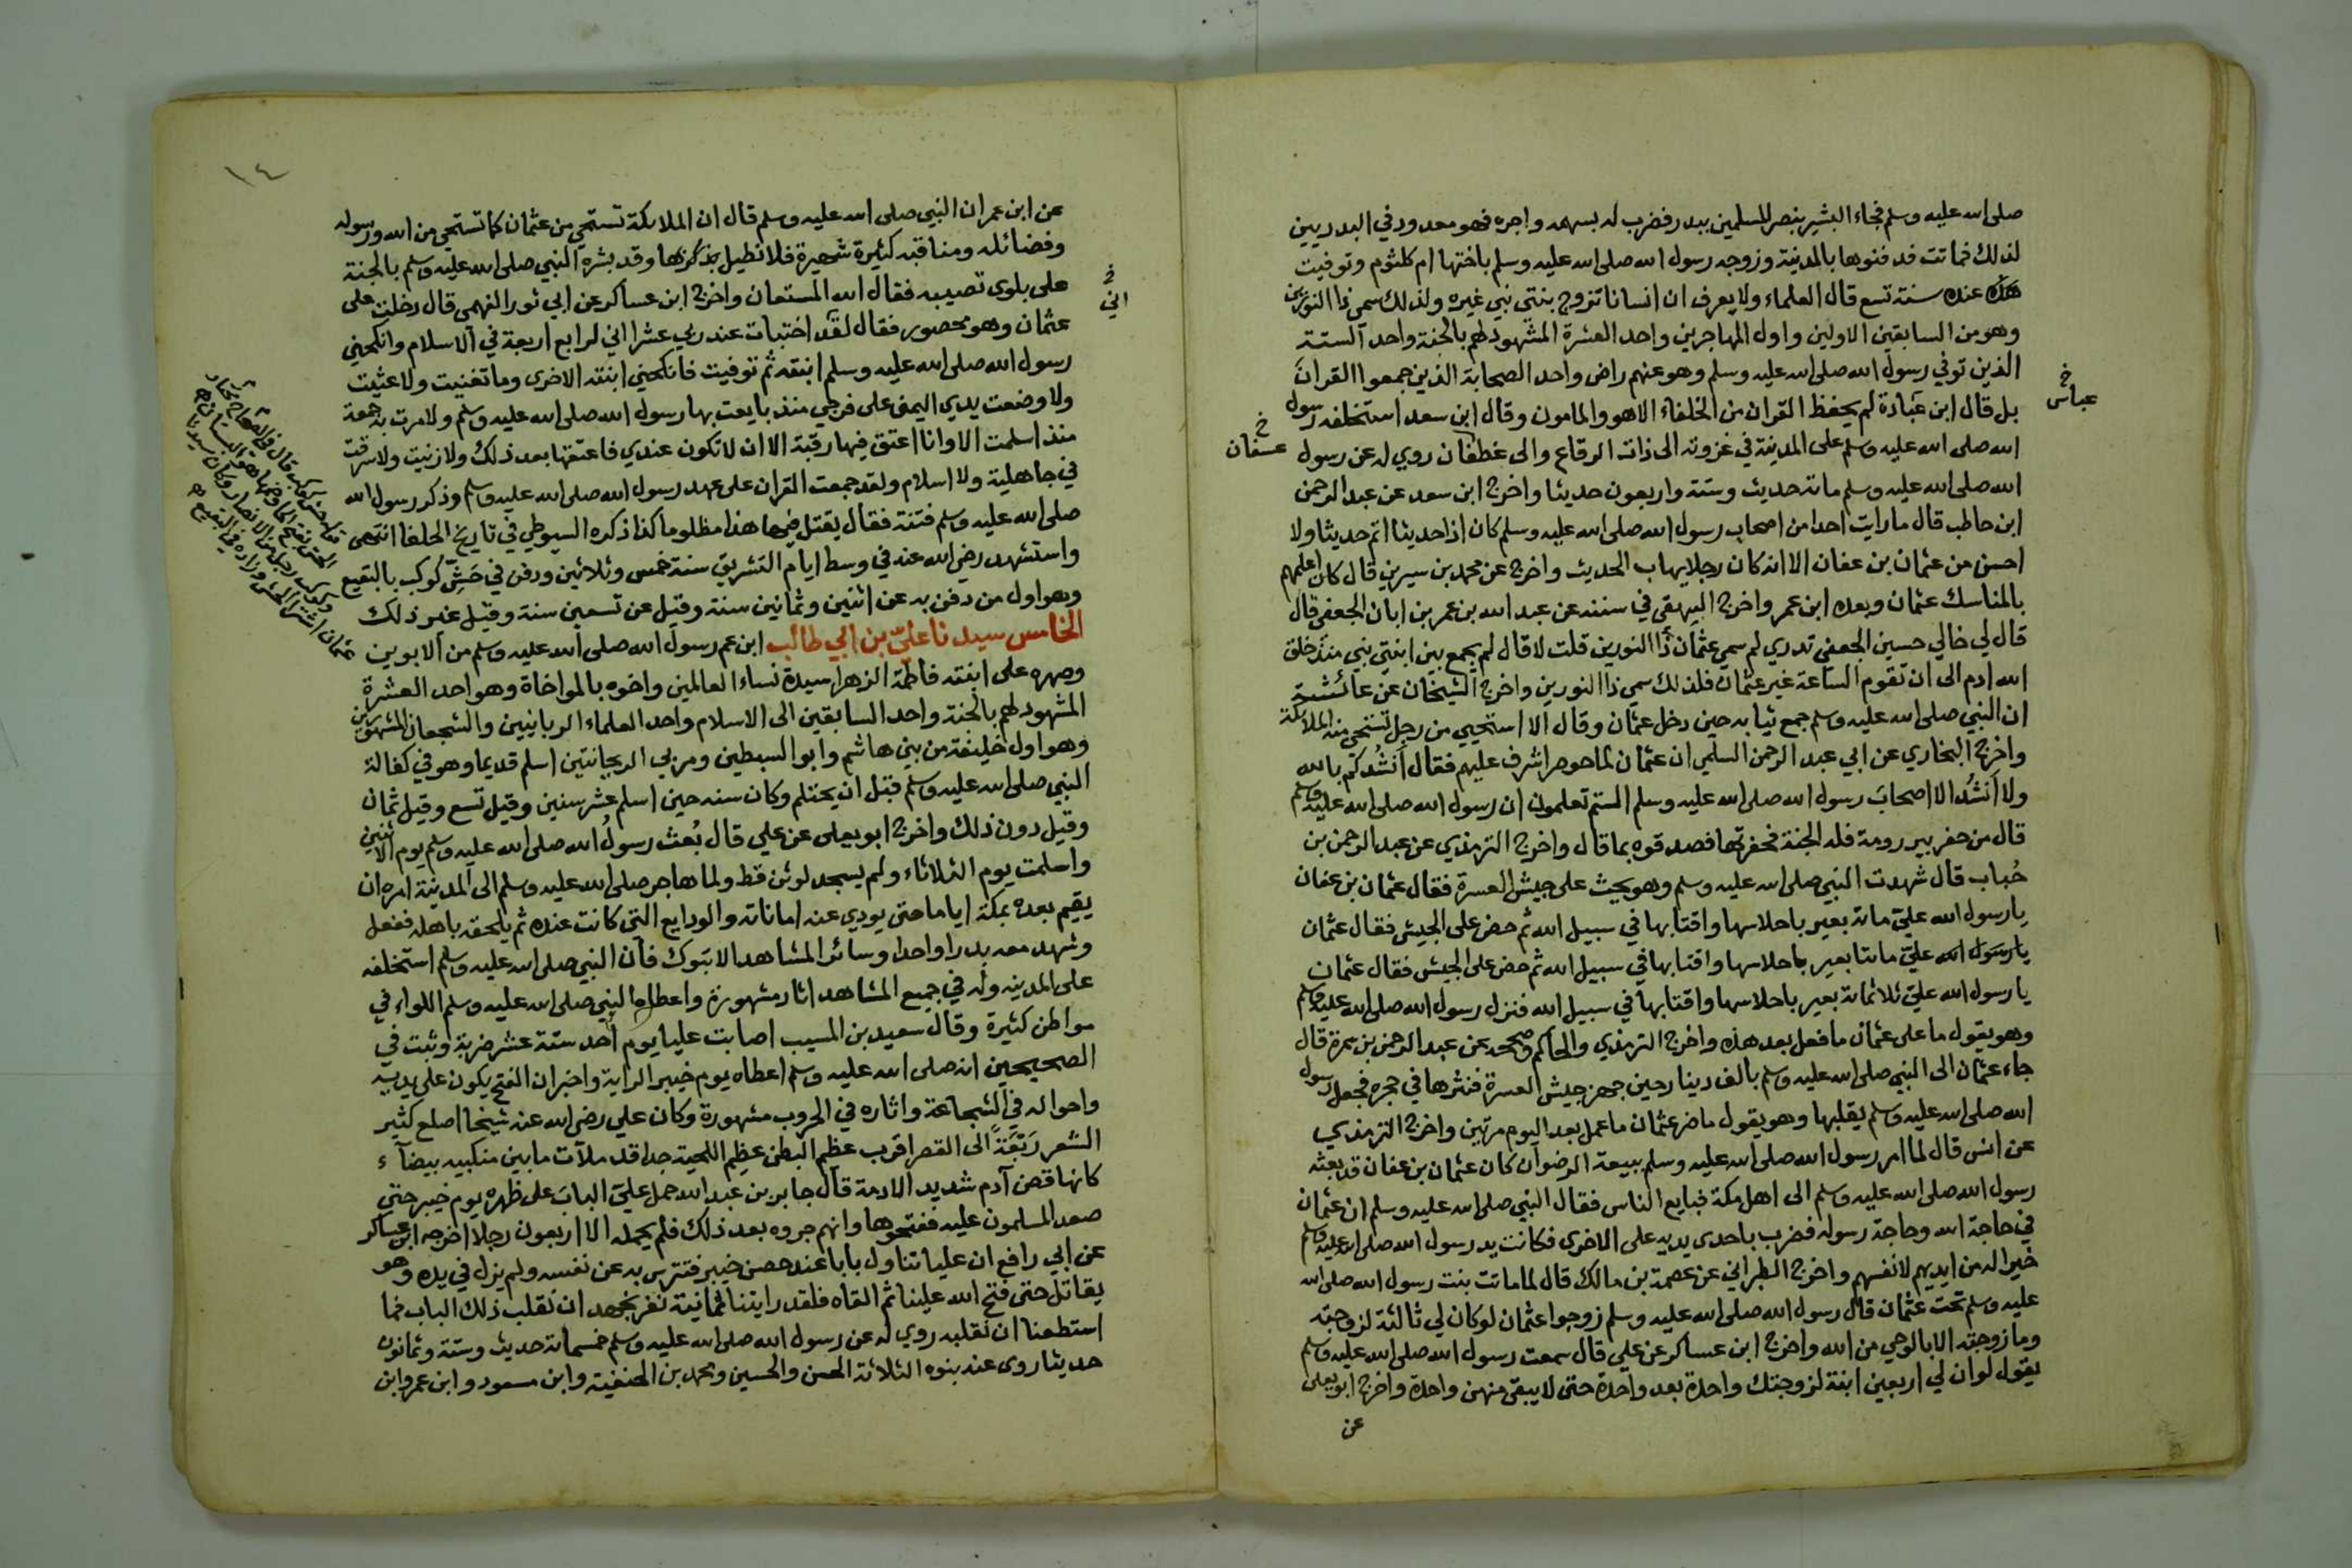 صلى الله عليه وسلم فجاء البشير بنصر المسلمين ببدر فضرب له بسهمه واجره فهو معدود في البدريين
لذلك فماتت فدفنوها بالمدينة وزوجه رسول الله صلى الله عليه وسلم باختها ام كلثوم وتوفيت
هذه عنده سنة تسع قال العلماء ولا يعرف ان انسانا تزوج بنتي نبي غيره ولذلك سمي ذا النورين
وهو من السابقين الاولين واول المهاجرين واحد العشرة المشهود لهم بالجنة واحد الستة
الذين توفي رسول الله صلى الله عليه وسلم وهو عنهم راض واحد الصحابة الذين جمعوا القران
خ
عباس
بل قال ابن عبادة لم يحفظ القران من الخلفاء الا هو والمامون وقال ابن سعد استخلفه رسول
الله صلى الله عليه وسلم على المدينة في غزوته الى ذات الرقاع والى غطفان روي له عن رسول
خ
عسفان
الله صلى الله عليه وسلم مائة حديث وستة واربعون حديثا واخرج ابن سعد عن عبد الرحمن
ابن حاطب قال ما رايت احدا من اصحاب رسول الله صلى الله عليه وسلم كان اذا حديثا اتم حديثا ولا
احسن من عثمان بن عفان الا انه كان رجلا يهاب الحديث واخرج عن محمد بن سيرين قال كان اعلمهم
بالمناسك عثمان وبعده ابن عمر واخرج البيهقي في سننه عن عبد الله بن عمر بن ابان الجعفي قال
قال لي خالي حسين الجعفي تدري لم سمي عثمان ذا النورين قلت لا قال لم يجمع بين ابنتي نبي منذ خلق
الله ادم الى ان تقوم الساعة غير عثمان فلذلك سمي ذا النورين واخرج الشيخان عن عائشة
ان النبي صلى الله عليه وسلم جمع ثيابه حين دخل عثمان وقال الا استحيي من رجل تستحي منه الملائكة
واخرج البخاري عن ابي عبد الرحمن السلمي ان عثمان لما حوصر اشرف عليهم فقال اَنشُدكم بالله
ولا اَنشُد الا اصحابَ رسول الله صلى الله عليه وسلم الستم تعلمون ان رسول الله صلى الله عليه وسلم
قال من حفر بير رومة فله الجنة فحفرتها فصدقوه بما قال واخرج الترمذي عن عبد الرحمن بن
خُباب قال شهدت النبي صلى الله عليه وسلم وهو يحث على جيش العسرة فقال عثمان بن عفان
يا رسول الله عليّ مائة بعير باحلاسها واقتابها في سبيل الله ثم حض على الجيش فقال عثمان
يا رسول الله عليّ مائتا بعير باحلاسها واقتابها في سبيل الله ثم حض على الجيش فقال عثمان
يا رسول الله عليّ ثلاثمائة بعير باحلاسها واقتابها في سبيل الله فنزل رسول الله صلى الله عليه وسلم
وهو يقول ما على عثمان ما فعل بعد هذه واخرج الترمذي والحاكم وصححه عن عبد الرحمن بن سمرة قال
جاء عثمان الى النبي صلى الله عليه وسلم بالف دينار حين جهز جيش العسرة فنثرها في حجره فجعل رسول
الله صلى الله عليه وسلم يقلبها وهو يقول ما ضر عثمان ما عمل بعد اليوم مرتين واخرج الترمذي
عن انس قال لما امر رسول الله صلى الله عليه وسلم ببيعة الرضوان كان عثمان بن عفان قد بعثه
رسول الله صلى الله عليه وسلم الى اهل مكة فبايع الناس فقال النبي صلى الله عليه وسلم ان عثمان
في حاجة الله وحاجة رسوله فضرب باحدى يديه على الاخرى فكانت يد رسول الله صلى الله عليه وسلم
خيرا له من ايديهم لانفسهم واخرج الطبراني عن عصمة بن مالك قال لما ماتت بنت رسول الله صلى الله
عليه وسلم تحت عثمان قال رسول الله صلى الله عليه وسلم زوجوا عثمان لو كان لي ثالثة لزوجته
وما زوجته الا بالوحي من الله واخرج ابن عساكر عن علي قال سمعت رسول الله صلى الله عليه وسلم
يقول لو ان لي اربعين ابنة لزوجتك واحدة بعد واحدة حتى لا يبقى منهن واحدة واخرج ابو يعلى
عن
١٤
عن ابن عمر ان النبي صلى الله عليه وسلم قال ان الملائكة تستحي من عثمان كما تستحي من الله ورسوله
وفضائله ومناقبه كثيرة شهيرة فلا نطيل بذكرها وقد بشره النبي صلى الله عليه وسلم بالجنة
على بلوى تصيبه فقال الله المستعان واخرج ابن عساكر عن ابي ثور الفهمي قال دخلت على
خ
اني
عثمان وهو محصور فقال لقد اختبات عند ربي عشرا اني لرابع اربعة في الاسلام وانكحني
رسول الله صلى الله عليه وسلم ابنته ثم توفيت فانكحني ابنته الاخرى وما تغنيت ولا عثيت
ولا وضعت يدي اليمنى على فرجي منذ بايعت بها رسول الله صلى الله عليه وسلم ولا مرت بي جمعة
منذ اسلمت الا وانا اعتق فيها رقبة الا ان لا تكون عندي فاعتقها بعد ذلك ولا زنيت ولا سرقت
في جاهلية ولا اسلام ولقد جمعت القران على عهد رسول الله صلى الله عليه وسلم وذكر رسول الله
صلى الله عليه وسلم فتنة فقال يقتل فيها هذا مظلوما كذا ذكره السيوطي في تاريخ الخلفا انتهى
واستشهد رضي الله عنه في وسط ايام التشريق سنة خمس وثلاثين ودفن في حَشِّ كوكب بالبقيع
وهو اول من دفن به عن اثنين وثمانين سنة وقيل عن تسعين سنة وقيل غير ذلك
الخامس سيدنا عليّ بن ابي طالب ابن عم رسول الله صلى الله عليه وسلم من الابوين
وصهره على ابنته فاطمة الزهرا سيدة نساء العالمين واخوه بالمواخاة وهو احد العشرة
المشهود لهم بالجنة واحد السابقين الى الاسلام واحد العلماء الربانيين والشجعان المشهورين
وهو اول خليفة من بني هاشم وابو السبطين ومربي الريحانتين اسلم قديما وهو في كفالة
النبي صلى الله عليه وسلم قبل ان يحتلم وكان سنه حين اسلم عشر سنين وقيل تسع وقيل ثمان
وقيل دون ذلك واخرج ابو يعلى عن علي قال بُعث رسولُ الله صلى الله عليه وسلم يوم الاثنين
واسلمت يوم الثلاثاء ولم يسجد لوثن قط ولما هاجر صلى الله عليه وسلم الى المدينة امره ان
يقيم بعده بمكة اياما حتى يودي عنه اماناته والودايع التي كانت عنده ثم يلحقه باهله ففعل
وشهد معه بدرا واحدا وسائر المشاهد الا تبوك فان النبي صلى الله عليه وسلم استخلفه
على المدينه وله في جميع المشاهد اثار مشهورة واعطاه النبي صلى الله عليه وسلم اللواء في
مواطن كثيرة وقال سعيد بن المسيب اصابت عليا يوم اُحد ستة عشر ضربة وثبت في
الصحيحين انه صلى الله عليه وسلم اعطاه يوم خيبر الراية واخبر ان الفتح يكون على يديه
واحواله في الشجاعة واثاره في الحروب مشهورة وكان علي رضي الله عنه شيخا اصلع كثير
الشعر رَبعَةً الى القصر اقرب عظيم البطن عظيم اللحية جدا قد ملأت ما بين منكبيه بيضآء
كانها قطن آدم شديد الادمة قال جابر بن عبد الله حمل علي البابَ على ظهره يوم خيبر حتى
صعد المسلمون عليه ففتحوها وانهم جروه بعد ذلك فلم يحمله الا اربعون رجلا اخرجه ابن عساكر
عن ابي رافع ان عليا تناول بابا عند حصن خيبر فتترس به عن نفسه ولم يزل في يده وهو
يقاتل حتى فتح الله علينا ثم القاه فلقد رايتنا ثمانية نفر نجهد ان نقلب ذلك الباب فما
استطعنا ان نقلبه روي له عن رسول الله صلى الله عليه وسلم خمسمائة حديث وستة وثمانون
حديثا روى عنه بنوه الثلاثة الحسن والحسين ومحمد بن الحنفية وابن مسعود وابن عمر وابن